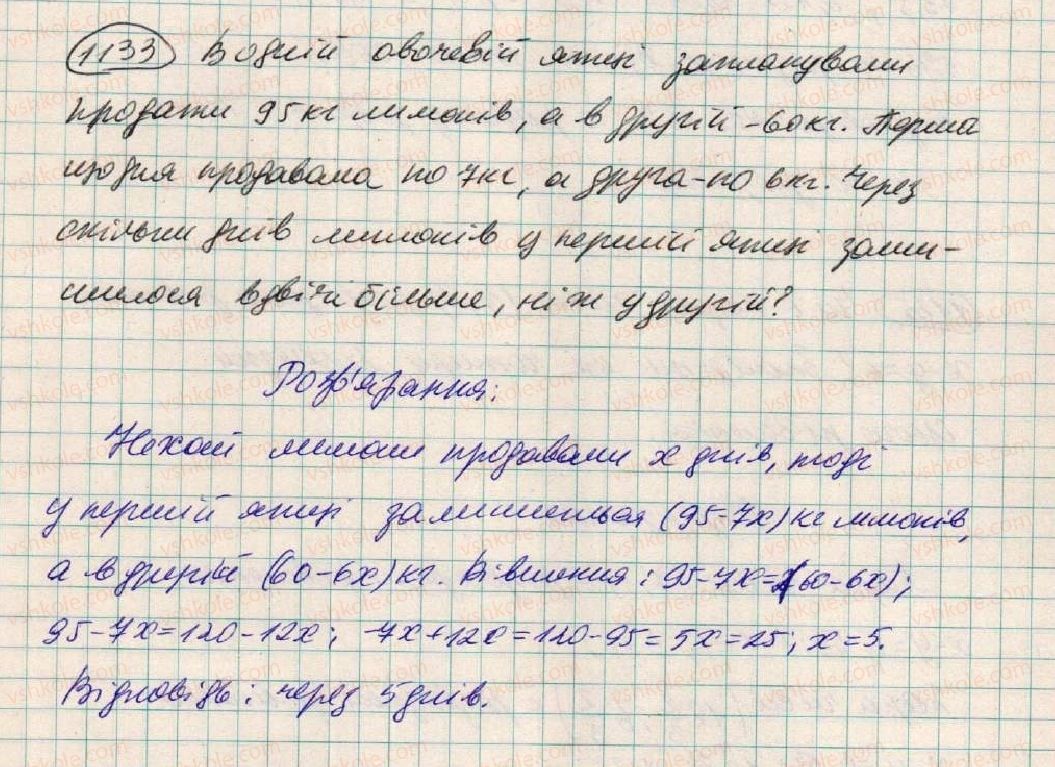 1133 В одній овочевій ятці запланували
продати 95 кг лимонів, а в другій - 60 кг. Перша
щодня продавала по 7 кг, а друга - по 6 кг. Через
скільки днів лимонів у першій ятці зали-
шилося вдвічі більше, ніж у другій?
Розв'язання:
Нехай лимони продавали х днів, тоді
у першій ятці залишиться (95-7х) кг лимонів,
а в другій (60-6х) кг. Рівняння: 95-7х=2(60-6х);
95-7х=120-12х; -7х+12х=120-95=5х=25; х=5.
Відповідь: через 5 днів.